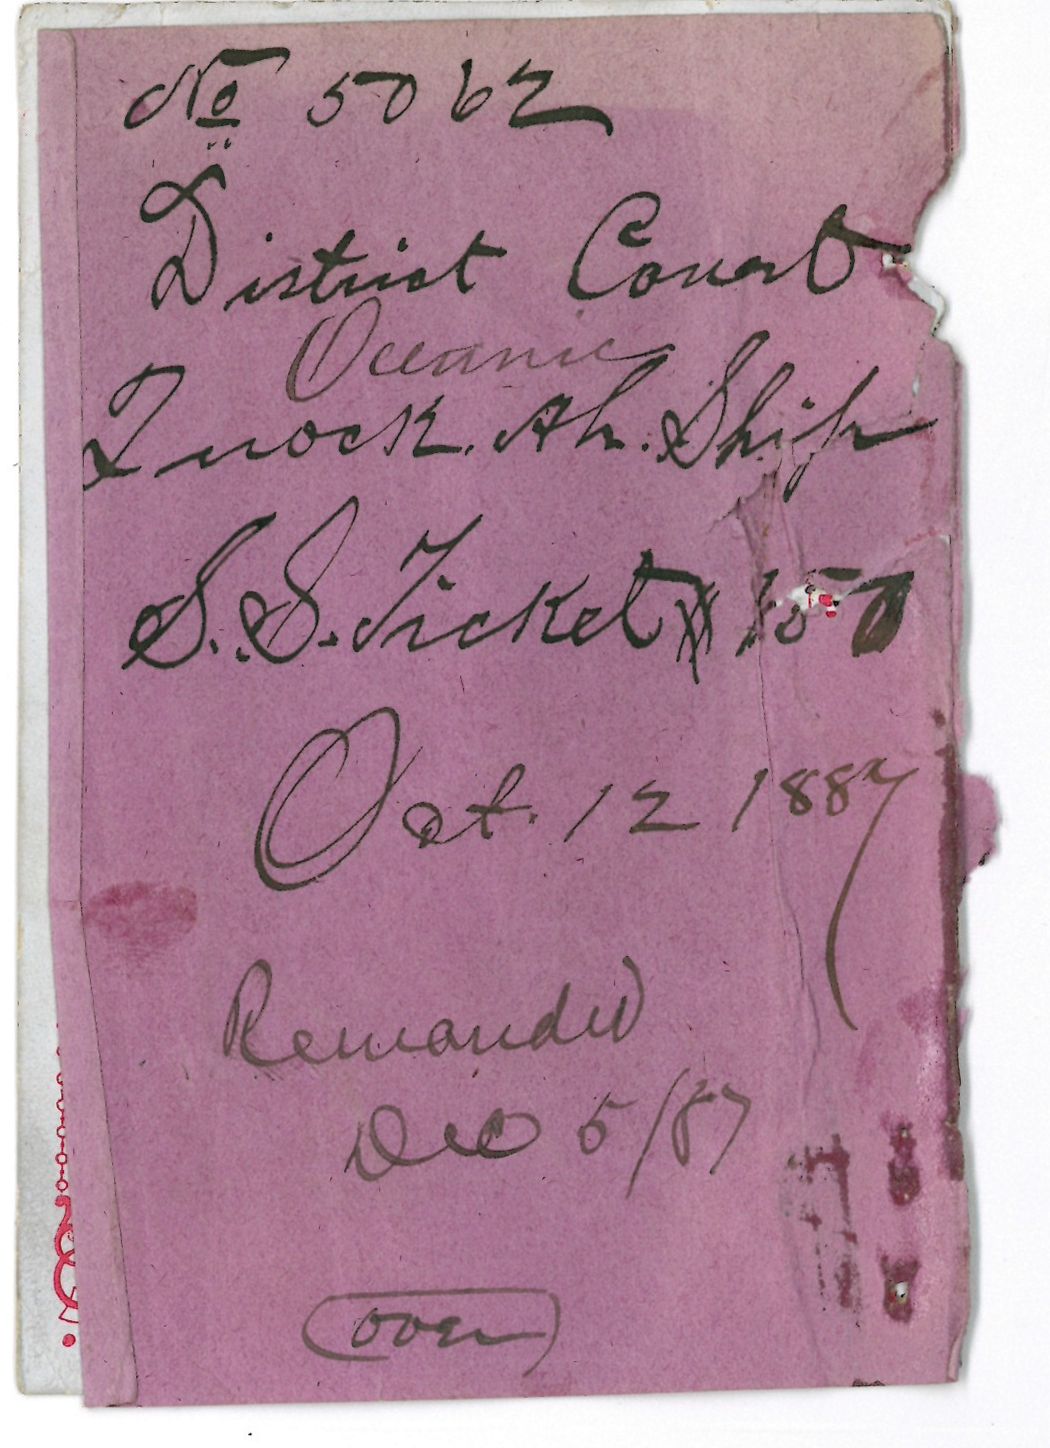 No 5062
District Court
Oceanic
Quock. Ah. Ship
S. S. Ticket # 150
Oct. 12 1887
Remanded
Dec 5/87
over